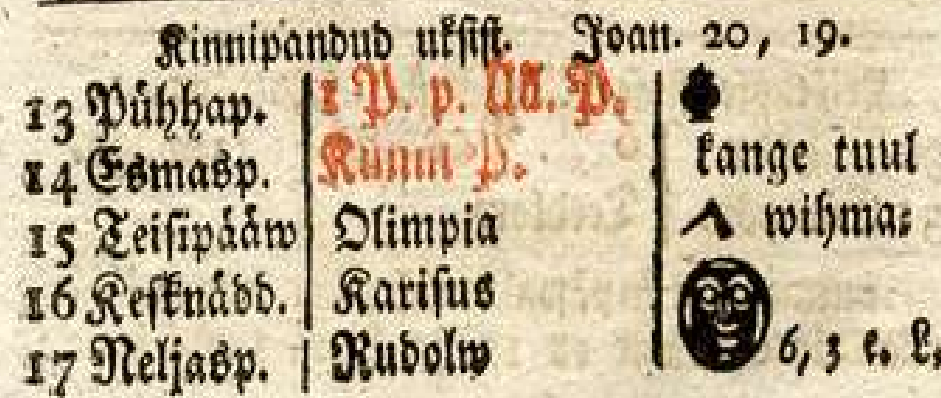 Kinnipandud uksist. Joan. 20, 19.
13 Pühhap. 1 P. p. ük. P.
14 Esmasp. Künni P. kange tuul
15 Teisipääw Olimpia wihma⸗
16 Kesknädd. Karisus
17 Neljasp. Rudolw 6, 3 e. L.